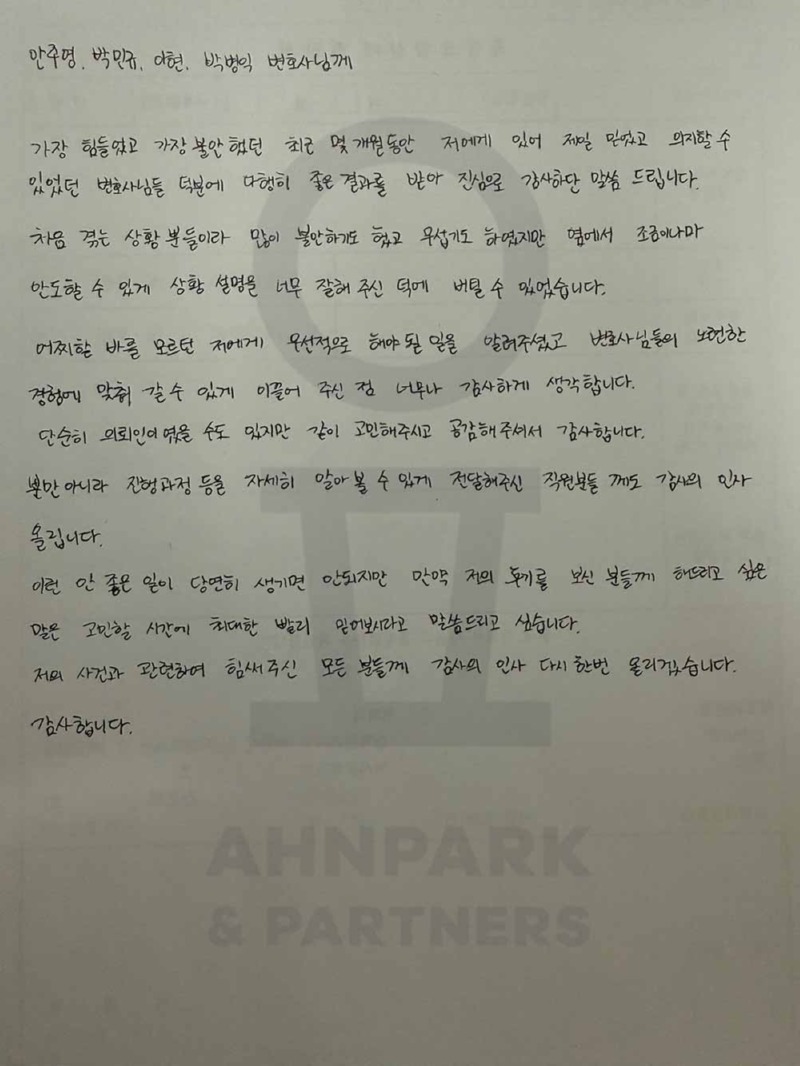 안주영, 박민규, 이현, 박병익 변호사님께
가장 힘들었고 가장 불안했던 최근 몇 개월동안 저에게 있어 제일 믿었고 의지할 수
있었던 변호사님들 덕분에 다행히 좋은 결과를 받아 진심으로 감사하단 말씀 드립니다.
처음 겪는 상황 뿐들이라 많이 불안하기도 했고 무섭기도 하였지만 옆에서 조금이나마
안도할 수 있게 상황 설명을 너무 잘해 주신 덕에 버틸 수 있었습니다.
어찌할 바를 모르던 저에게 우선적으로 해야 될 일을 알려주셨고 변호사님들의 노련한
경험에 맞춰 갈 수 있게 이끌어 주신 점 너무나 감사하게 생각합니다.
단순히 의뢰인이였을 수도 있지만 같이 고민해주시고 공감해주셔서 감사합니다.
뿐만 아니라 진행과정 등을 자세히 알아 볼 수 있게 전달해주신 직원분들 께도 감사의 인사
올립니다.
이런 안 좋은 일이 당연히 생기면 안되지만 만약 저의 후기를 보신 분들께 해드리고 싶은
말은 고민할 시간에 최대한 빨리 믿어보시라고 말씀드리고 싶습니다.
저의 사건과 관련하여 힘써 주신 모든 분들께 감사의 인사 다시 한번 올리겠습니다.
감사합니다.
AHNPARK
& PARTNERS